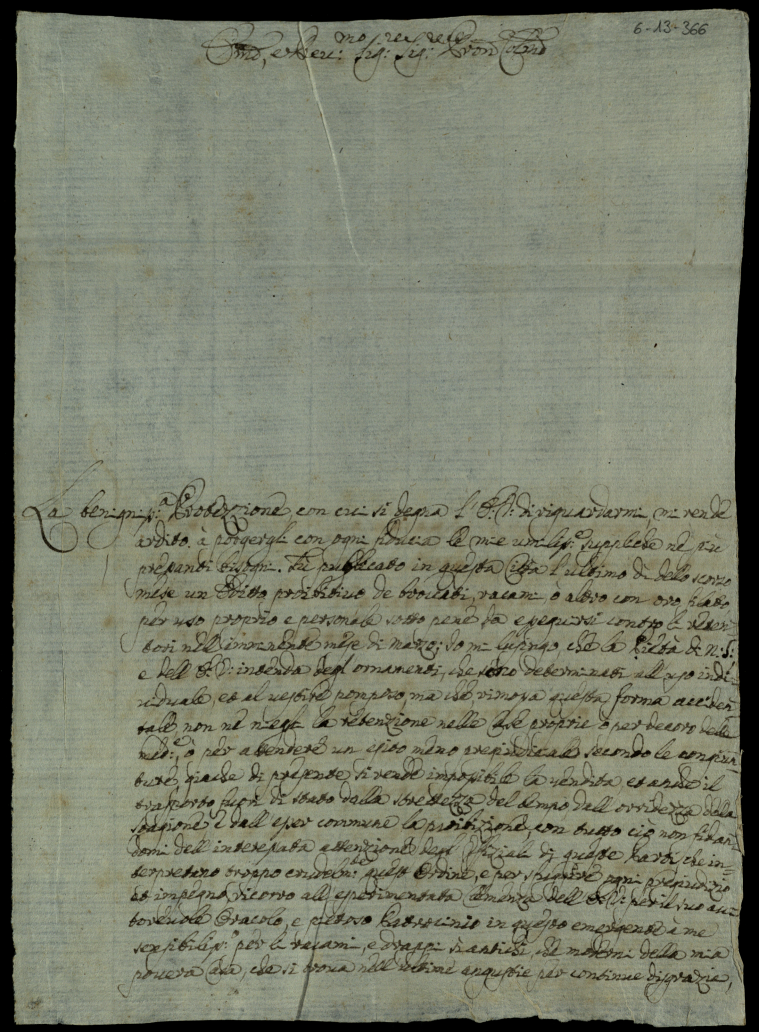 6-13-366
Em̃o, e Rev: mo Sig: re Sig: re Pron Col̃mo
La benignis:a Protezzione, con cui si degna l'E.V: di riguardarmi, mi rende
ardito à porgergli con ogni fiducia le mie umilis:e suppliche nè più
pressanti bisogni. Fù publicato in questa Città l'ultimo dì dello scorzo
mese un Editto proibitivo de broccati, racami, ò altro con oro filato
per uso proprio e personale sotto pene da eseguirsi contro le
tori nell'imminente mese di marzo; Io mi lusingo, che la Pietà di N: S:
e dell'E.V: intenda degl'ornamenti, che sono determinati all'uso indi-
viduale, et al vestire pomposo, ma che rimossa questa forma acciden-
tale non ne nieghi la retenzione nelle Case proprie ò per decoro delle
med:e, ò per attendere un esito meno pregiudiciale secondo le congiun-
ture, giache di presente si rende impossibile la vendita, et anche il
trasporto fuori di stato dalla strettezza del tempo dall'orridezza della
stagione e dall'esser commune la proibizione, con tutto ciò non fidan-
domi dell'intepata attenzione degl'Offiziali di queste parti, che in-
terpretano troppo crudelm:te quest'Ordine, e per sfuggire ogni pregiudizio
et impegno, ricorro all'esperimentata Clemenza dell'E.V: per il suo au-
torevole Oracolo, e pietoso Patrocinio in questo emergente à me
sensibilis:o per li racami, e drappi sì antichi, che moderni della mia
povera Casa, che si trova nell'ultime angustie per continue disgrazie,